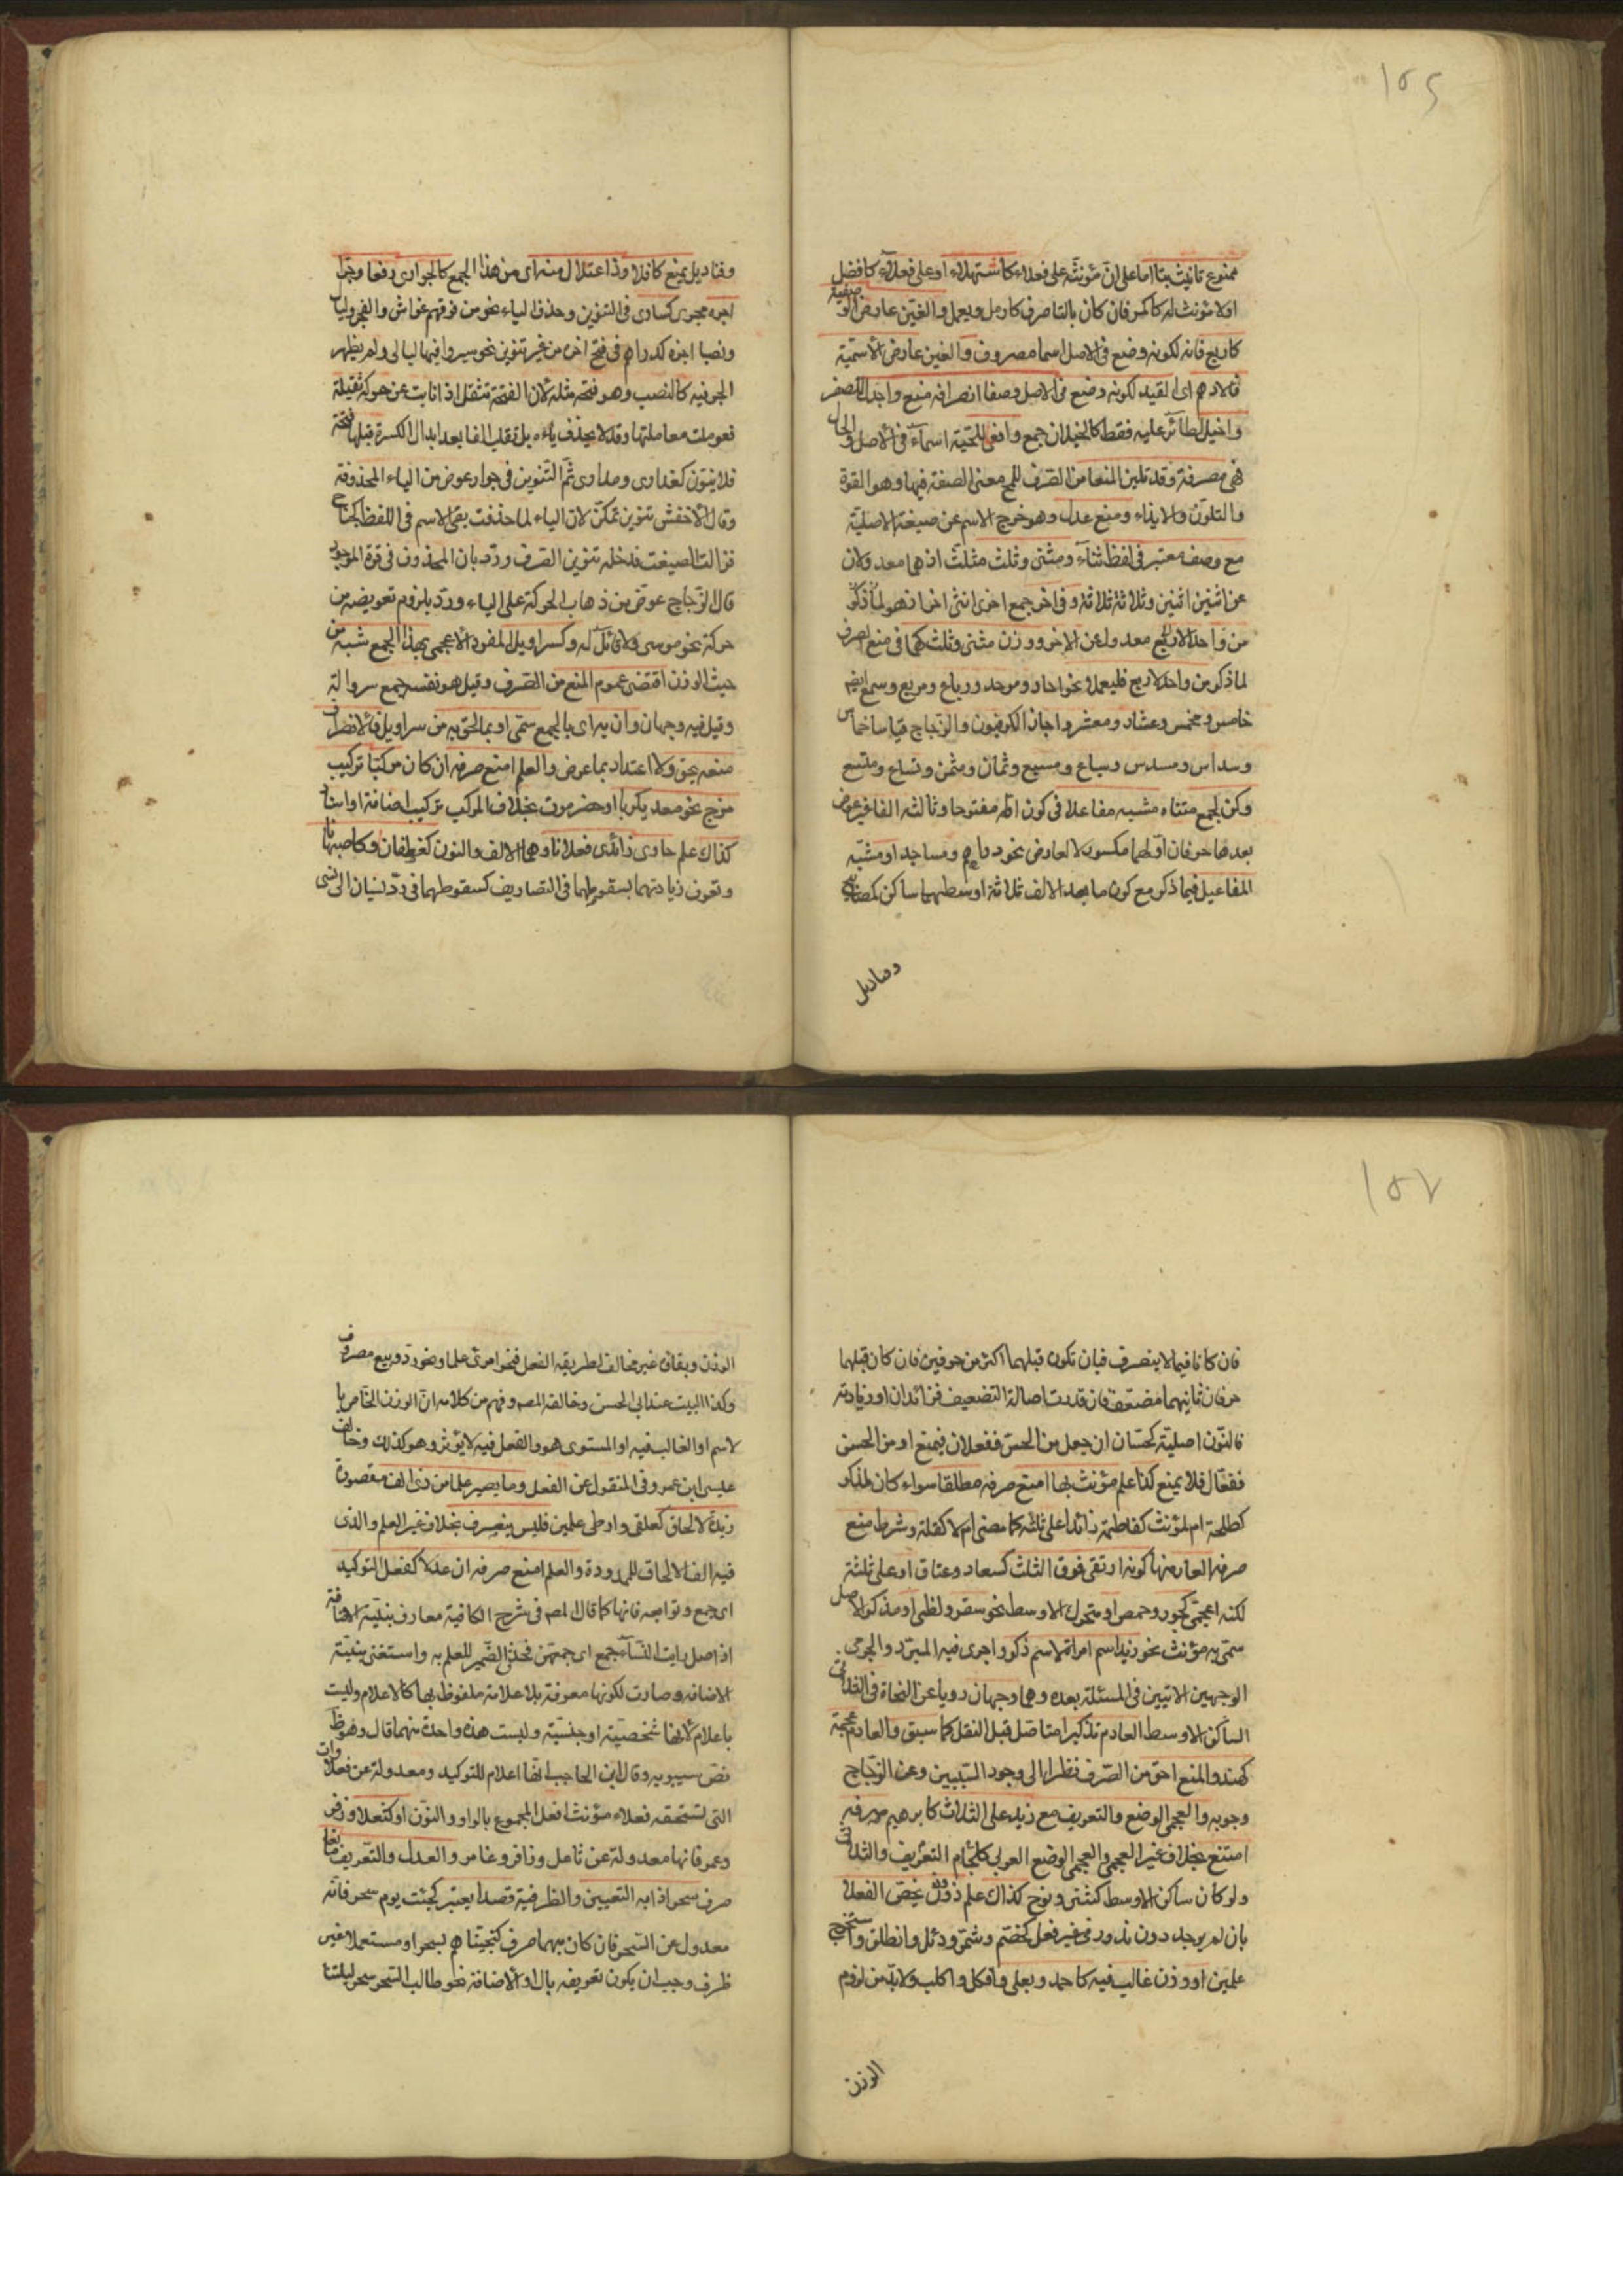 ١٥٦
ممنوع تانيث بتا اما على ان مؤنثه على فعلاء كاشهلاء او على فعلى كافضل
اولا مؤنث له كاكمر فان كان بالتا صرف كارمل ويعمل والغين عارض الوصفية
كاربع فانه لكونه وضع فى الاصل اسما مصروف والغين عارض الاسمية
فالادهم اى القيد لكونه وضع فى الاصل وصفا انصرافه منع واجدل للصقر
واخيل لطائر عليه فقط كالخيلان جمع وافعى للحية اسماء فى الاصل والحال
فهى مصرفة وقد تلين المنعا من الصرف للمح معنى الصفة فيها وهو القوة
والتلون والايذاء ومنع عدل وهو خروج الاسم عن صيغته الاصلية
مع وصف معتبر فى لفظ ثناء ومثنى وثلث مثلث اذ هما معدولان
عن اثنين اثنين وثلاثة ثلاثة وفى اخر جمع اخرى انثى اخر اذ هو لما ذكر
معدول عن الاخر ووزن مثنى وثلث كهما فى منع الصرف
لما ذكر من واحد لاربع فليعملا نحو احاد وموحد ورباع ومربع وسمع ايضا
خامس ومخمس وعشار ومعشر واجاز الكوفيون والزجاج قياسا خماس
وسداس ومسدس وسباع ومسبع وثمان ومثمن وتساع ومتسع
وكن لجمع متناه مشبه مفاعلا فى كون اوله مفتوحا وثالثه الفا غير عوض
بعدها حرفان اولهما مكسور لا لعارض نحو دراهم ومساجد او مشبه
المفاعيل فيما ذكر مع كون ما بعد الالف ثلاثة اوسطها ساكن كمصابيح
وقناديل
وقناديل يمنع كافلا وذا اعتلال منه اى من هذا الجمع كالجوارى رفعا وجرا
اجره مجرى كسارى فى التنوين وحذف الياء نحو من فوقهم غواش والفجر وليال
ونصبا اجره كدراهم فى فتح اخره من غير تنوين نحو سيروا فيها ليالى ولم يظهر
الجر فيه كالنصب وهو فتحة مثله لان الفتحة تثقل اذا نابت عن حركة ثقيلة
فعوملت معاملتها وقد لا يحذف ياءه بل تقلب الفا بعد ابدال الكسرة قبلها فتحة
فلا ينون كعذارى ومدارى ثم التنوين فى جوار عوض من الياء المحذوفة
وقال الاخفش تنوين تمكن لان الياء لما حذفت بقى الاسم فى اللفظ كجناح
فزالت الصيغة فدخله تنوين الصرف ورد بان المحذوف فى قوة الموجود
قال الزجاج عوض من ذهاب الحركة على الياء ورد بلزوم تعويضه من
حركة نحو موسى ولا قائل له ولسراويل المفرد الاعجمى بهذا الجمع شبه من
حيث الوزن اقتضى عموم المنع من الصرف وقيل هو نفسه جمع سروالة
وقيل فيه وجهان وان به اى بالجمع سمى او بما لحق به من سراويل فالانصراف
منعه يحق ولا اعتداد بما عرض والعلم امنع صرفه ان كان مركبا تركيب
مزج نحو معديكربا او حضرموت بخلاف المركب تركيب اضافة او اسناد
كذاك علم حاوى زائدى فعلانا وهما الالف والنون كغطفان وكاصبهانا
وتعرف زيادتهما بسقوطهما فى التصاريف كسقوطهما فى رد نسيان الى نسى
١٥٧
فان كانا فيما لا ينصرف فبان تكون قبلهما اكثر من حرفين فان كان قبلهما
حرفان ثانيهما مضعف فان قدرت اصالة التضعيف فزائدان او زيادته
فالنون اصلية كحسان ان جعل من الحس ففعلان فيمنع او من الحسن
ففعال فلا يمنع كذا علم مؤنث بها امنع صرفه مطلقا سواء كان لمذكر
كطلحة ام لمؤنث كفاطمة زائدا على ثلثه كما مضى ام لا كقلة وشرط منع
صرف العار منها كونه ارتقى فوق الثلث كسعاد وعناق او على ثلثة
لكنه اعجمى كجور وحمص او متحرك الاوسط نحو سقر ولظى او مذكر الاصل
سمى به مؤنث نحو زيد اسم امراة لا اسم ذكر واجرى فيه المبرد والجرمى
الوجهين الاتيين فى المسئلة بعده وهى وجهان رويا عن النحاة فى الثلاثى
الساكن الاوسط العادم تذكيرا متاصل قبل النقل كما سبق والعادم عجمة
كهند والمنع احق من الصرف نظرا الى وجود السببين وعن الزجاج
وجوبه والعجمى الوضع والتعريف مع زيد على الثلاث كابرهيم صرفه
امتنع بخلاف غير العجمى والعجمى الوضع العربى كلجام التعريف والثلاثى
ولو كان ساكن الاوسط كشتر ونوح كذاك علم ذو وزن يخص الفعلا
بان لم يوجد دون ندور فى غير فعل كخضم وشمر ودئل وانطلق واستخرج
علمين او وزن غالب فيه كاحمد ويعلى وافكل واكلب ولابد من لزوم
الوزن
الوزن وبقائه غير مخالف لطريقه الفعل فنحو امرئ علما ونحو رد وبيع مصروف
وكذا البيت عند ابى الحسن وخالفه المصـ وفهم من كلامه ان الوزن الخاص با
لاسم او الغالب فيه او المستوى هو والفعل فيه لا يؤثر وهو كذلك وخالف
عيسى ابن عمرو فى المنقول عن الفعل وما يصير علما من ذى الف مقصورة
زيدت لالحاق كعلقى وارطى علمين فليس ينصرف بخلاف غير العلم والذى
فيه الف الالحاق الممدودة والعلم امنع صرفه ان عدلا كفعل التوكيد
اى جمع وتوابعه فانها كما قال المصـ فى شرح الكافية معارف بنية الاضافة
اذ اصل رايت النساء جمع اى جمعهن فحذف الضمير للعلم به واستغنى بنية
الاضافة وصارت لكونها معرفة بلا علامة ملفوظ بها كالاعلام وليست
باعلام لانها شخصية او جنسية وليست هذه واحدة منهما قال وهو ظ
نص سيبويه وقال ابن الحاجب انها اعلام للتوكيد ومعدولة عن فعلاوات
التى تستحقه فعلاء مؤنث افعل المجموع بالواو والنون او كثعلا وزفر
وعمر فانها معدولة عن ثاعل وزافر وعامر والعدل والتعريف مانعا
صرف سحر اذا به التعيين والظرفية قصدا يعتبر كجئت يوم سحر فانه
معدول عن السحر فان كان مبهما صرف كنجيناهم بسحر او مستعملا غير
ظرف وجب ان يكون تعريفه بال او الاضافة نحو طاب السحر سحر ليلتنا